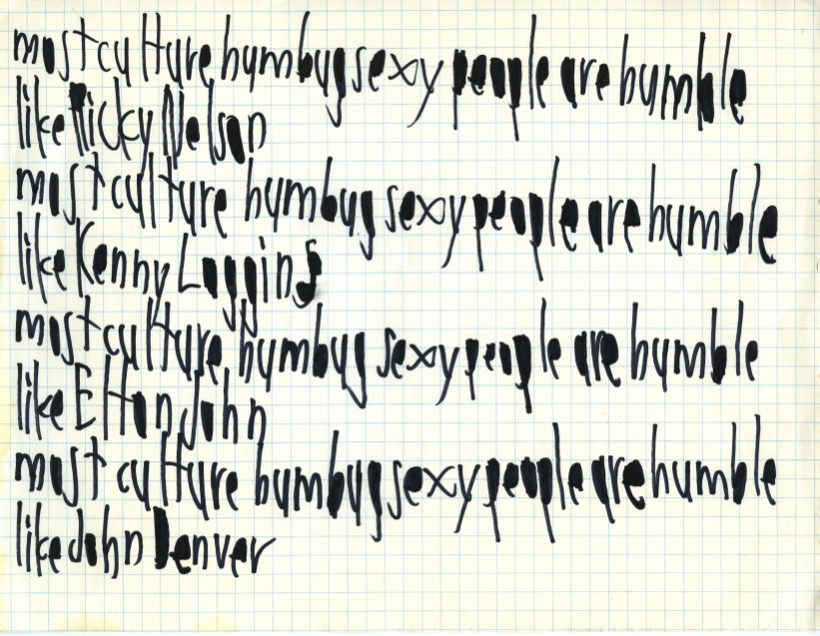 most culture humbug sexy people are humble
like Ricky Nelson
most culture humbug sexy people are humble
like Kenny Loggins
most culture humbug sexy people are humble
like Elton John
most culture humbug sexy people are humble
like John Denver